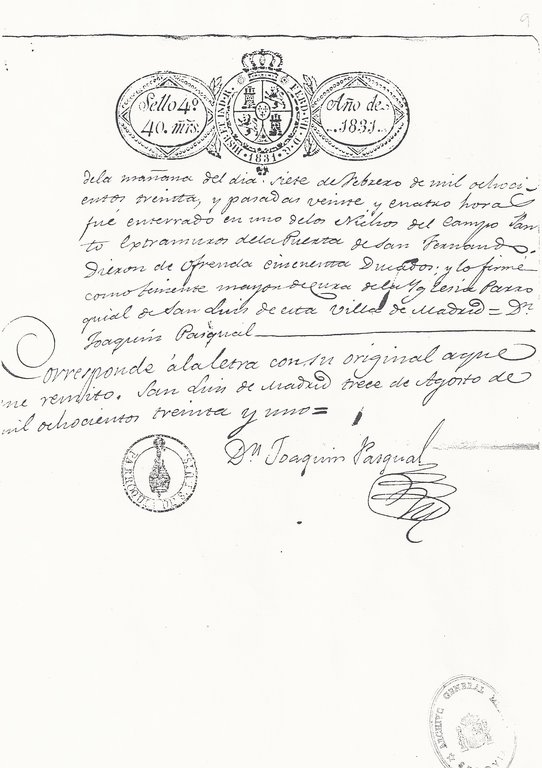 9
Sello 4º
40. mrs.
HISP. ET IND. R. FERD. VII. D. G. 1831.
Año de
1831.
dela mañana del dia siete de Febrero de mil ochoci-
entos treinta, y pasadas veinte y cuatro horas
fué enterrado en uno delos Nichos del Campo San-
to Extramuros dela Puerta de San Fernando.
Dieron de ofrenda cincuenta Ducados; y lo firmé
como teniente mayor de Cura dela Yglesia Parro
quial de San Luis de esta Villa de Madrid = Dn.
Joaquin Pasqual
Corresponde á la letra con su original aque
me remito. San Luis de Madrid trece de Agosto de
mil ochocientos treinta y uno =
Dn Joaquin Pasqual
PARROQUIA DE S. LUIS.
ARCHIVO GENERAL M
SEGOVIA